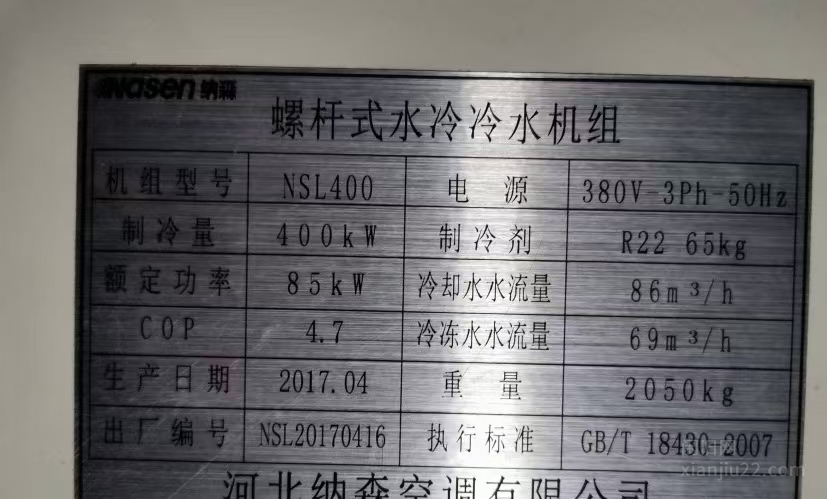 Nasen 纳森
螺杆式水冷冷水机组
机组型号 NSL400 电源 380V-3Ph-50Hz
制冷量 400kW 制冷剂 R22 65kg
额定功率 85kW 冷却水水流量 86m³/h
COP 4.7 冷冻水水流量 69m³/h
生产日期 2017.04 重量 2050kg
出厂编号 NSL20170416 执行标准 GB/T 18430-2007
xianjiu22.com
河北纳森空调有限公司